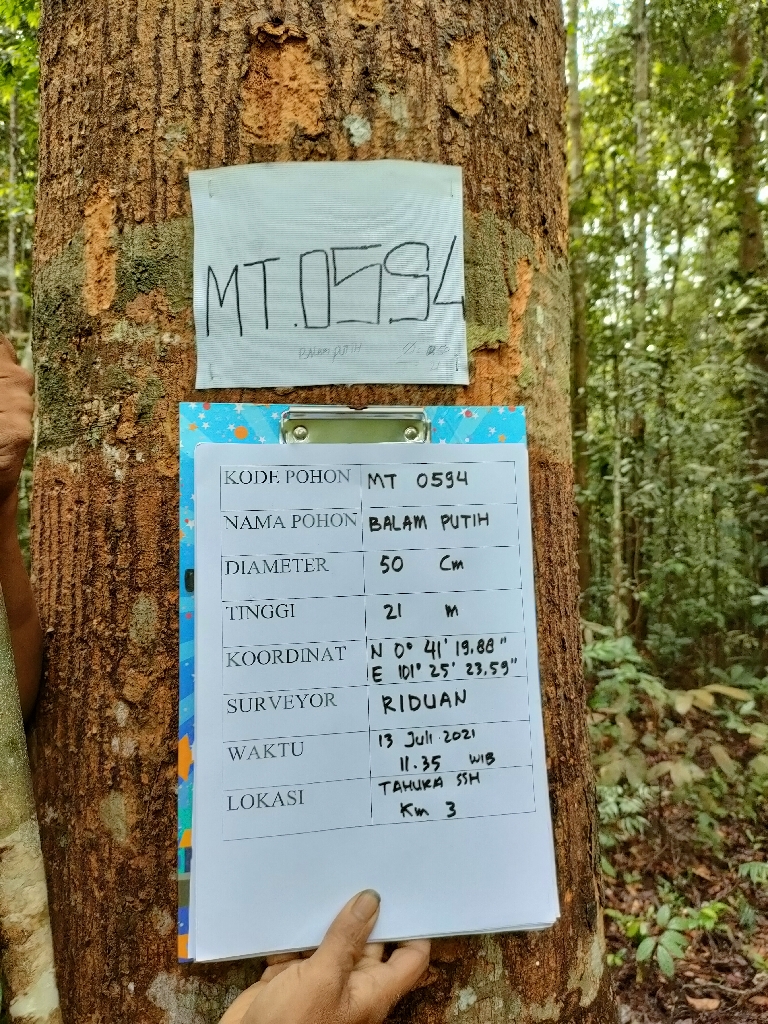 MT.0594
BALAM PUTIH
KODE POHON MT 0594
NAMA POHON BALAM PUTIH
DIAMETER 50 Cm
TINGGI 21 m
KOORDINAT N 0° 41' 19.88"
E 101° 25' 23.59"
SURVEYOR RIDUAN
WAKTU 13 Juli 2021
11.35 WIB
LOKASI TAHURA SSH
Km 3